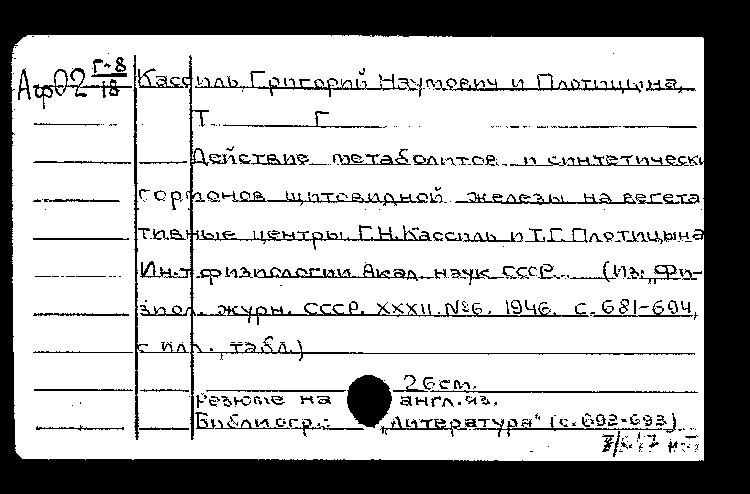 Агр02 Г-8/18 Кассиль, Григорий Наумович и Плотицына,
Т Г
Действие метаболитов и синтетически
гормонов щитовидной железы на вегета
тивные центры. Г.Н.Кассиль и Т.Г. Плотицына
Ин-т физиологии Акад. наук СССР.. (Из: „Фи-
зиол. журн. СССР. XXXII. №6. 1946. с. 681-694,
с илл., табл.)
26см.
Резюме на англ.яз.
Библиогр.: „Литература" (с. 692-693)